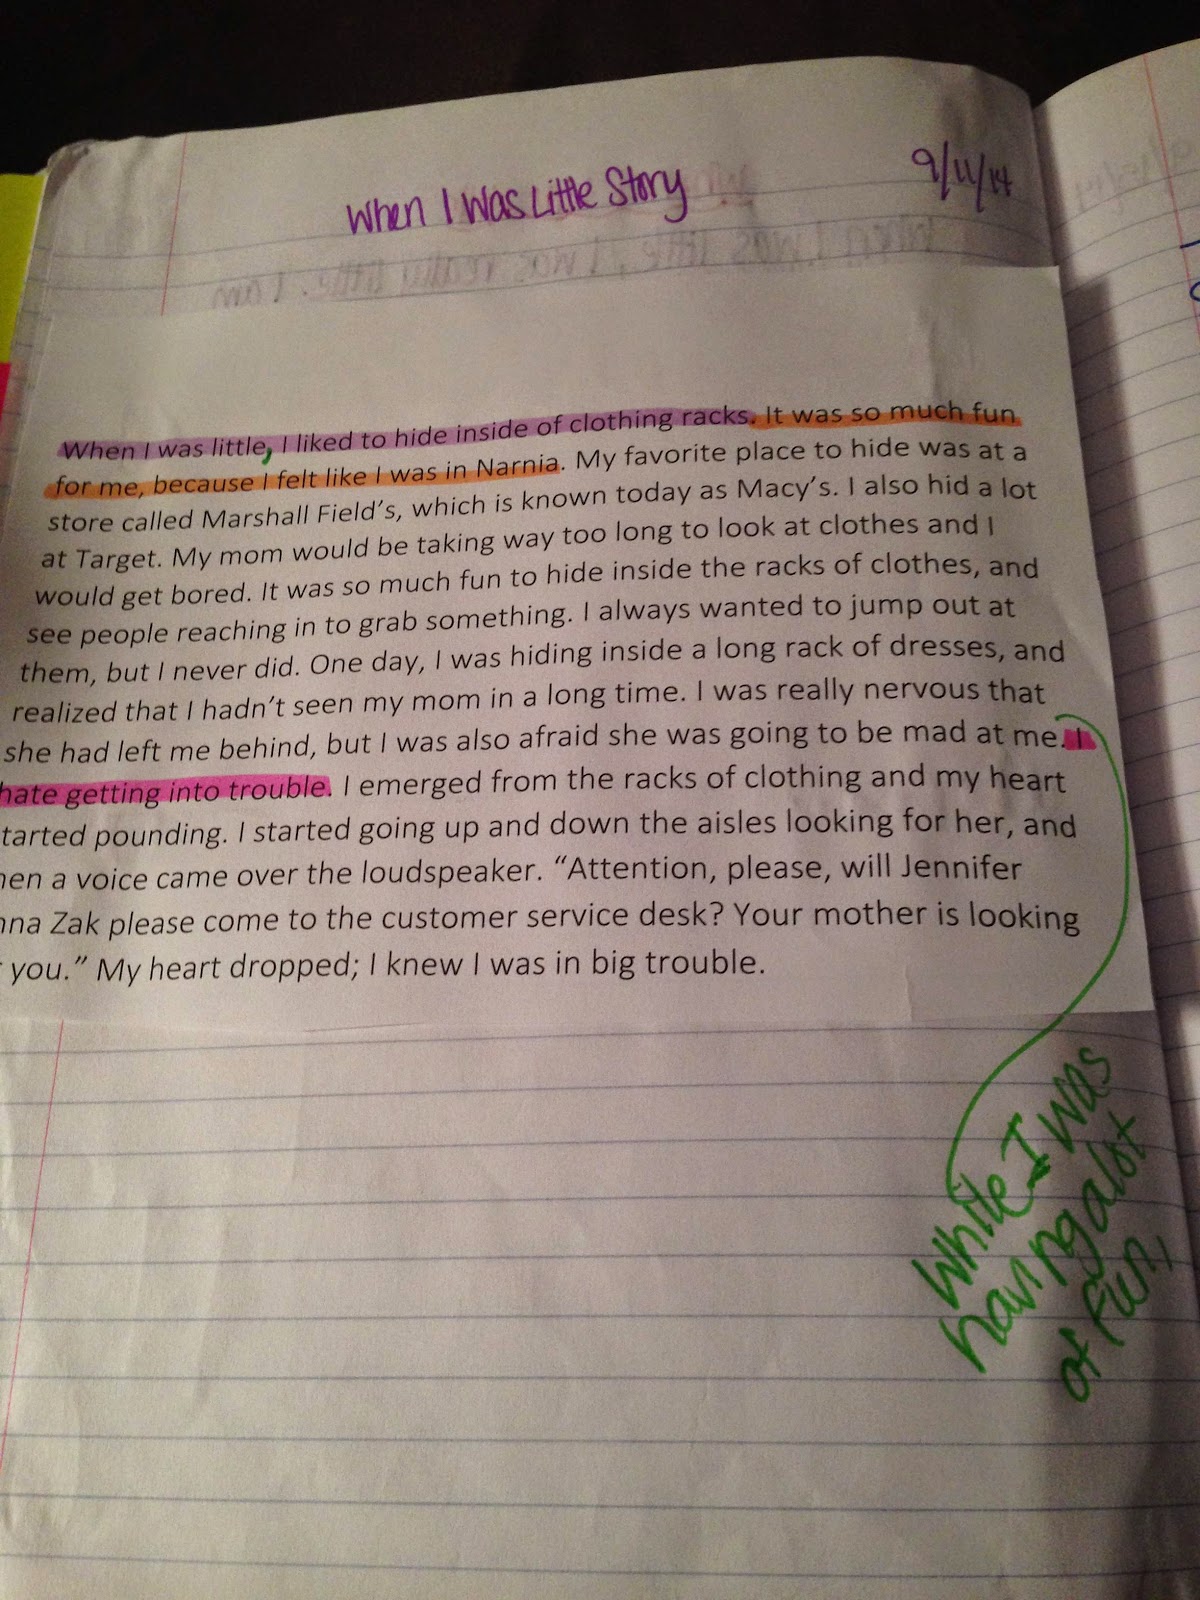 When I Was Little Story
9/11/14
When I was little, I liked to hide inside of clothing racks. It was so much fun
for me, because I felt like I was in Narnia. My favorite place to hide was at a
store called Marshall Field's, which is known today as Macy's. I also hid a lot
at Target. My mom would be taking way too long to look at clothes and I
would get bored. It was so much fun to hide inside the racks of clothes, and
see people reaching in to grab something. I always wanted to jump out at
them, but I never did. One day, I was hiding inside a long rack of dresses, and
realized that I hadn't seen my mom in a long time. I was really nervous that
she had left me behind, but I was also afraid she was going to be mad at me. I
hate getting into trouble. I emerged from the racks of clothing and my heart
tarted pounding. I started going up and down the aisles looking for her, and
hen a voice came over the loudspeaker. “Attention, please, will Jennifer
nna Zak please come to the customer service desk? Your mother is looking
you.” My heart dropped; I knew I was in big trouble.
While I was
having a lot
of fun,